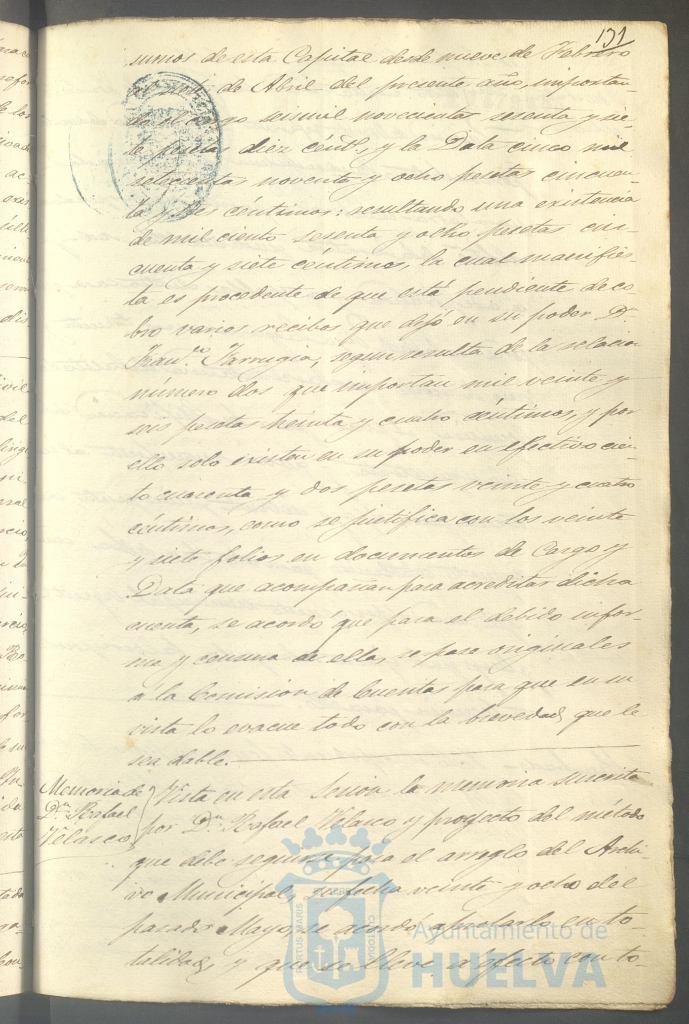 131
sumos de esta Capital desde nueve de Febrero
de Abril del presente año, importan
do el cargo seis mil novecientas sesenta y sie
te pesetas diez cént.s, y la Data cinco mil
setecientas noventa y ocho pesetas cincuen-
ta y tres céntimos: resultando una existencia
de mil ciento sesenta y ocho pesetas cin-
cuenta y siete céntimos, la cual manifies-
ta es procedente de que está pendiente de co-
bro varios recibos que dejó en su poder D.n
Fran.co Farrugia, segun resulta de la relacion
número dos que importan mil veinte y
seis pesetas treinta y cuatro céntimos, y por
ello solo existen en su poder en efectivo cien-
to cuarenta y dos pesetas veinte y cuatro
céntimos, como se justifica con los veinte
y siete folios en documentos de Cargo y
Data que acompañan para acreditar dicha
cuenta, se acordó que para el debido infor-
me y censura de ella, se pase originales
a la Comision de Cuentas para que en su
vista lo evacue todo con la brevedad que le
sea dable.
Memoria de
D.n Rafael
Velasco
Vista en esta Sesion la memoria suscrita
por D.n Rafael Velasco y proyecto del método
que debe seguirse para el arreglo del Archi-
vo Municipal, su fecha veinte y ocho del
pasado Mayo, se acordó aprobarlo en to-
talidad, y que se lleve a efecto con to-
Ayuntamiento de
HUELVA